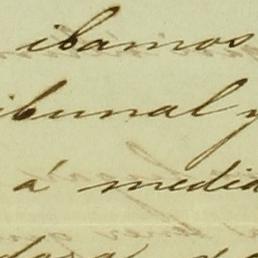 ibamos
ibunal y
á medid